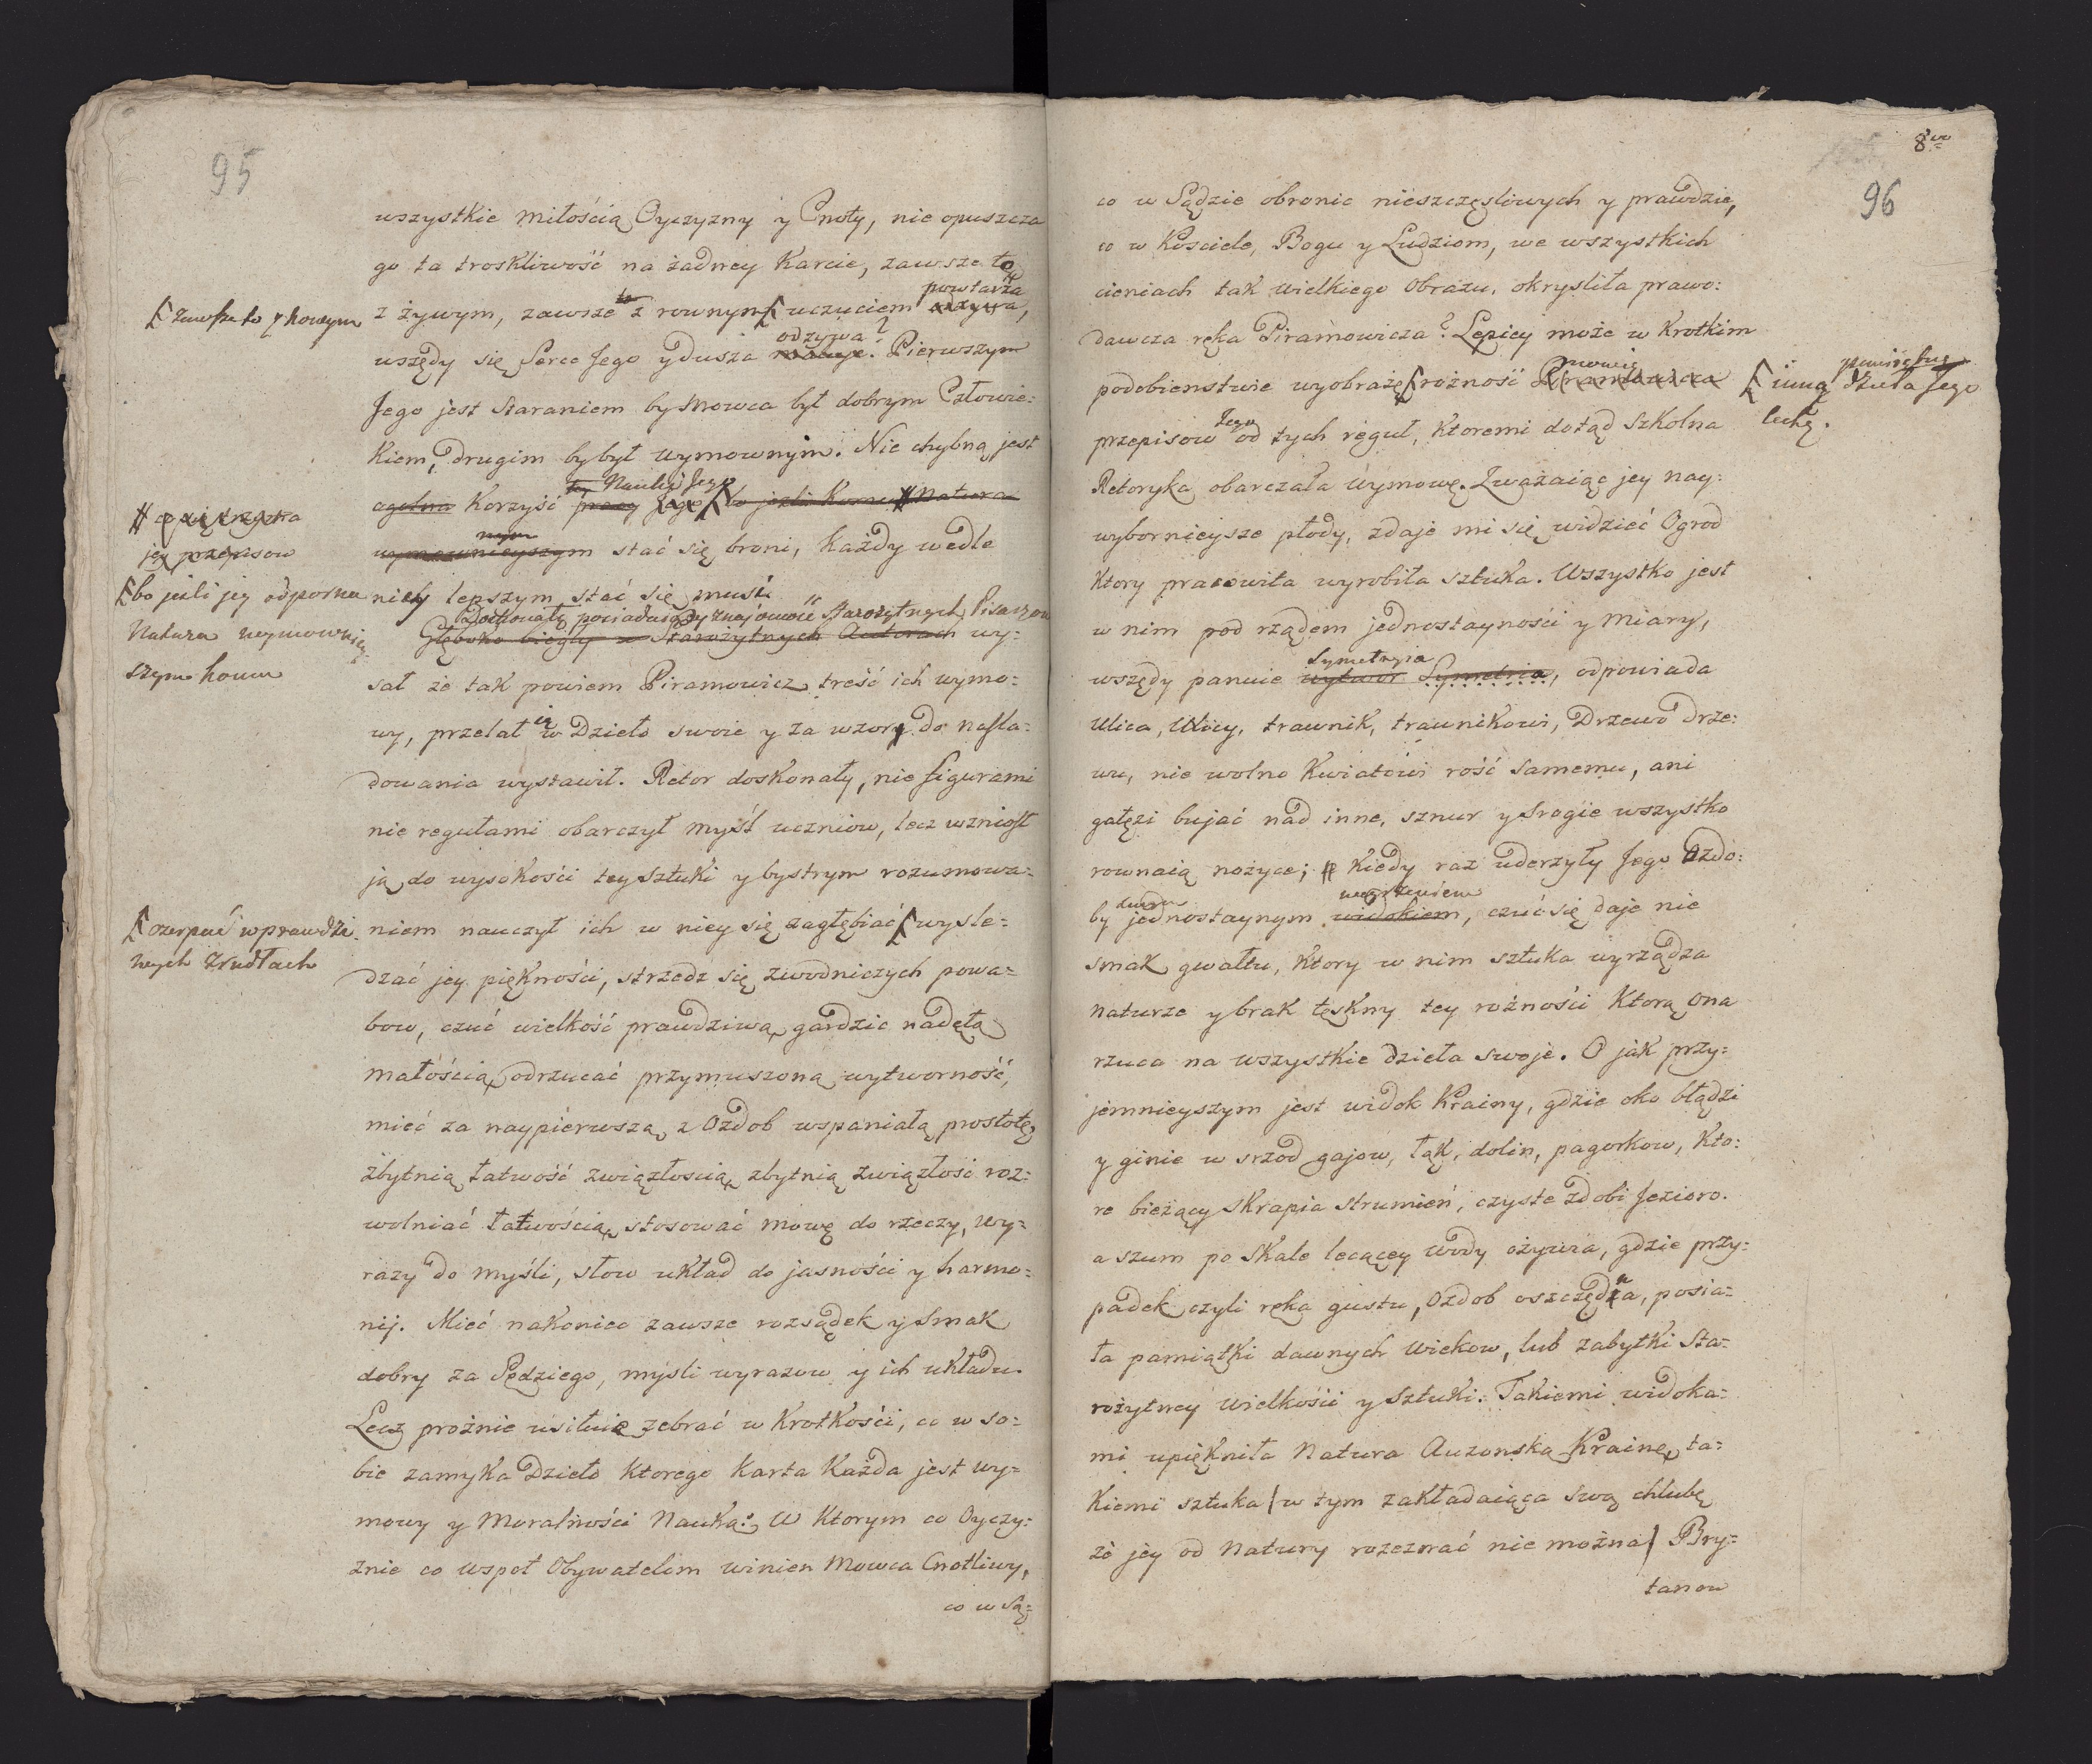 95
wszystkie miłością Oyczyzny y Cnoty, nie opuszcza
go ta troskliwość na żadney Karcie, zawsze to
powtarza
z żywym, zawsze z rownym uczuciem odzywa,
zawsze to z nowym
odzywa
wszędy się Serce Jego y dusza maluje. Pierwszym
Jego jest staraniem by Mowca był dobrym Człowie=
kiem, drugim by był wymownym. Nie chybną jest
tey Nauki Jego
ogolna Korzyść pracy Jego bo jeżli Komu Natura
jey przepisow
nym
wymownieyszym stać się broni, Każdy wedle
bo jeśli jey odporna
Natura wymowniey=
szym komu
nich lepszym stać się musi.
Doskonałą posiadaiący znajomość Starożytnych Pisarzow
Głęboko biegły w Starożytnych Autorach wy=
sał że tak powiem Piramowicz treść ich wymo=
wy, przelał ią w Dzieło swoie y za wzory do nasla=
dowania wystawił. Retor doskonały, nie figurami
nie regułami obarczył myśl uczniow, lecz wzniosł
ją do wysokości tey sztuki y bystrym rozumowa=
niem nauczył ich w niey się zagłębiać wysle=
czerpać w prawdzi=
wych zrudłach
dzać jey piękności, strzedz się zwodniczych powa=
bow, czuć wielkość prawdziwą, gardzic nadętą
małością, odrzucać przymuszoną wytworność,
mieć za naypierwszą z Ozdob wspaniałą prostotę,
zbytnią łatwość związłoscią, zbytnią związłość roz=
wolniać łatwością, stosować mowę do rzeczy, wy=
razy do myśli, słow układ do jasności y harmo=
nij. Mieć nakoniec zawsze rozsądek y Smak
dobry za Sędziego, myśli wyrazow y ich układu.
Lecz prożnie usiłuię zebrać w Krotkości, co w so=
bie zamyka Dzieło Ktorego Karta Każda jest wy=
mowy y Moralności Nauką. W Ktorym co Oyczy=
znie co wspoł Obywatelom winien Mowca Cnotliwy,
co w Są=
8
96
co w Sądzie obronie nieszczęsliwych y prawdzie,
co w Kosciele, Bogu y Ludziom, we wszystkich
cieniach tak wielkiego Obrazu, okryslita prawo=
dawcza ręka Piramowicza? Lepiey może w Krotkim
podobienstwie wyobrażę rożność Piramowicza
inną Dzieła Jego
cechę.
Jego
przepisow od tych reguł, Ktoremi dotąd Szkolna
Retoryka obarczała Wymowę. Zwazaiąc jey nay=
wybornieysze płody, zdaje mi się widzieć Ogrod
Ktory pracowita wyrobiła sztuka. Wszystko jest
w nim pod rządem jednostayności y Miary,
Symetryia
wszędy panuie wytwor Symetria, odpowiada
Ulica, Ulicy, trawnik, trawnikowi, Drzewo Drze=
wu, nie wolno Kwiatowi rość Samemu, ani
gałęzi bujać nad inne, sznur y Srogie wszystko
rownaią nożyce; Kiedy raz uderzyły Jego Ozdo=
weyrzeniem
by jednostaynym widokiem, czuć się daje nie
smak gwałtu, Ktory w nim sztuka wyrządza
naturze y brak tęskny tey rożności Ktorą Ona
rzuca na wszystkie dzieła swoje. O jak przy=
jemnieyszym jest widok Krainy, gdzie oko błądzi
y ginie w srzod gajow, Łąk, dolin, pagorkow, Kto=
re bieżący skrapia strumień, czyste zdobi Jezioro.
a szum po Skale lecącey wody ożywia, gdzie przy=
padek czyli ręka gustu, Ozdob oszczędna, posia=
ła pamiątki dawnych Wiekow, lub zabytki Sta=
rożytney wielkości y Sztuki. Takiemi widoka=
mi upiękniła Natura Auzonską Krainę, ta=
Kiemi sztuka (w tym zakładaiąca swą chlubę
że jey od Natury rozeznać nie można) Bry=
tanow